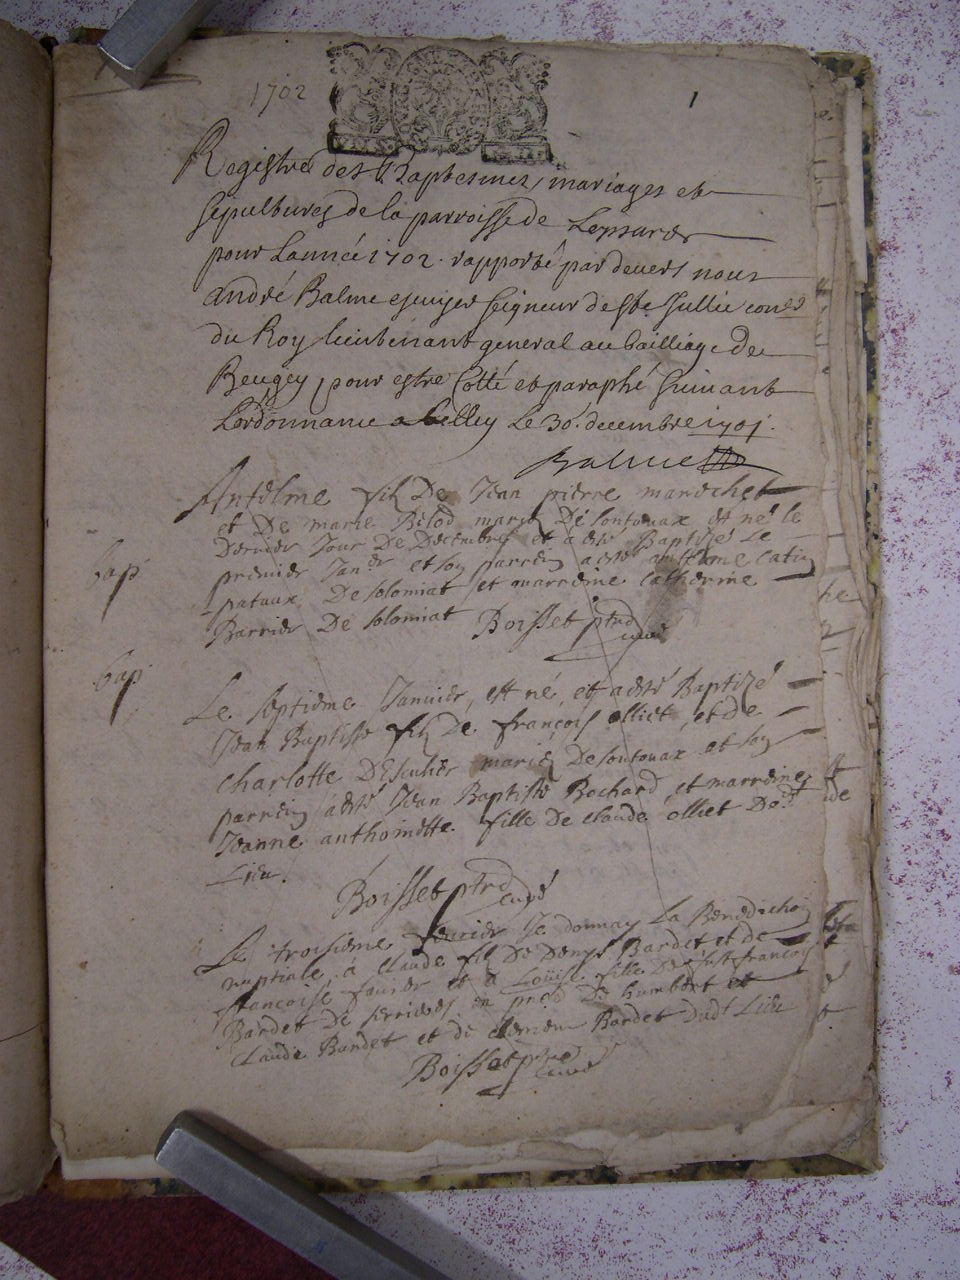 1702
1
Registre des Baptesmes, mariages et
sepultures de la parroisse de
pour Lannéé 1702. rapporté par devers nous
andré Balme escuyer seigneur de Ste Jullie cons
du Roy lieutenant general au bailliage de
Beugey, pour estre Cotté et paraphé suivant
Lordonnance a Belley Le 30e. decembre 1701.
Balme
Antelme filz De Jean pierre marechet
et De marie Bilod mariez De lontouax est né le
Dernier Jour De Decembre et a esté Baptizé Le
bap
premier Janer et son parrein a esté anthelme
pataux De solomiat et marreine Catherine
Barrier De solomiat Boisset ptre
curé
bap
Le septieme Janvier, est né, et a esté Baptizé
Jean Baptiste filz De françois olliet, et de
charlotte mariez De lontouax et son
parrein a esté Jean Baptiste Bochard, et marreine
Jeanne anthoinette fille De claude olliet Dud
Lieu.
Boisset ptre
curé
Le troisieme fevrier Je donnay La Benediction
nuptiale à claude filz De Denys Bardet et de
françoise favier et a Louise fille De fust françois
Bardet De serrieres en prece De humbert et
claude Bardet et de Bardet dudt Lieu
Boisset ptre
curé